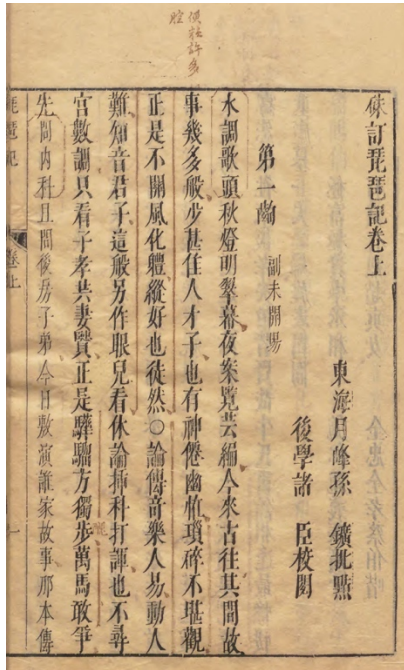 硃訂琵琶記卷上
東海月峰孫 鑛批點
後學諸 臣校閱
第一齣 副末開場
水調歌頭秋燈明翠幕夜案覽芸編今來古往其間故
事幾多般少甚佳人才子也有神僊幽怪瑣碎不堪觀
正是不關風化體縱好也徒然○論傳奇樂人易動人
難知音君子這般另作眼兒看休論插科打諢也不尋
宮數調只看子孝共妻賢正是驊騮方獨步萬馬敢爭
先問內科且問後房子弟今日敷演誰家故事那本傳
琵琶記 卷上 一
許多